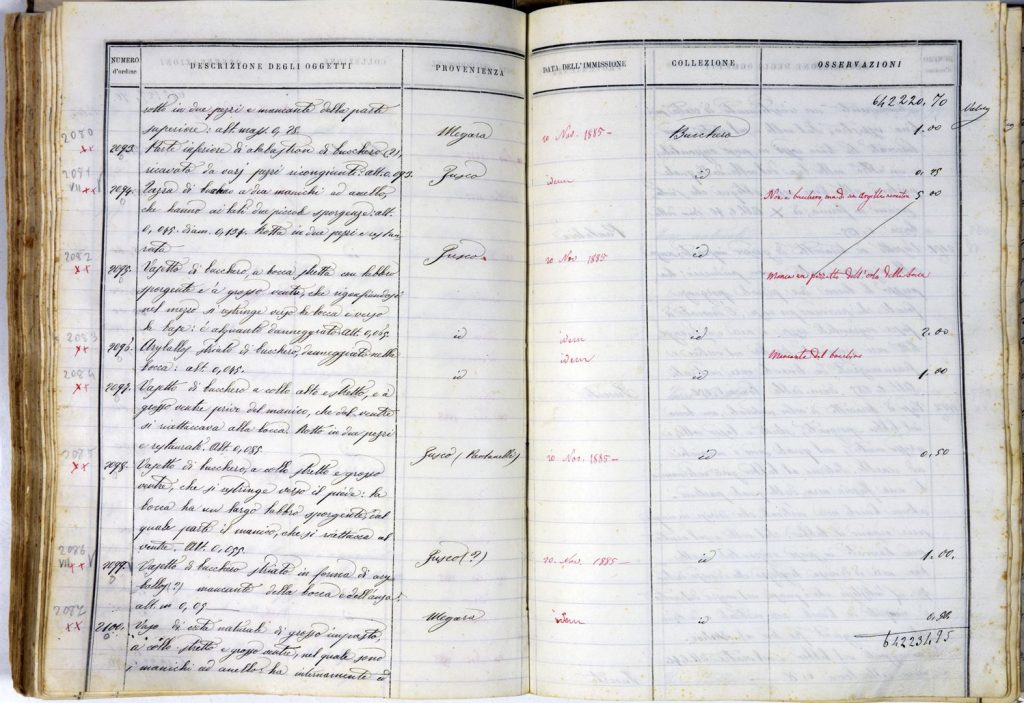 NUMERO
d'ordine
DESCRIZIONE DEGLI OGGETTI
PROVENIENZA
DATA DELL'IMMISSIONE
COLLEZIONE
OSSERVAZIONI
642220,70
rotto in due pezzi e mancante della parte
superiore: alt. mass. 0,18. Megara 20 Nov. 1885 - Bucchero 1.00
2090
2093. Parte inferiore di alabastron di bucchero (?),
ricavato da varj pezzi ricongiunti: alt. 0,093. Gusco idem id
2091
VII
2094. Tazza di bucchero a due manichi ad anello,
che hanno ai lati due piccole sporgenze: alt.
0,045. diam. 0,134. Rotta in due pezzi e restau
rata Gusco. 20 Nov 1885 id 5.00
2092
2095. Vasetto di bucchero, a bocca stretta con labbro
sporgente e a grosso ventre, che rigonfiandosi
nel mezzo si restringe verso la bocca e verso
la base: è alquanto danneggiato. Alt. 0,065. id idem id 2.00
dell'orlo della bocca
2093
2096. Aryballos striato di bucchero, danneggiato nella
bocca: alt. 0,045. id idem id 1.00
Mancante del
2084
2097. Vasetto di bucchero a collo alto e stretto, e a
grosso ventre privo del manico, che dal ventre
si riattaccava alla bocca. Rotto in due pezzi
e restaurato. Alt. 0,085. Gusco 20 Nov. 1885 - id 0,50
2085
2098. Vasetto di bucchero, a collo stretto e grosso
ventre, che si restringe verso il piede: la
bocca ha un largo labbro sporgente, dal
quale parte il manico, che si riattacca al
ventre. Alt. 0,055. Gusco (?) 20 Nov 1885 - id 1.00.
2086
VII
2099. Vasetto di bucchero striato in forma di ary
ballos (?) mancante della bocca e dell'ansa:
alt. m 0,05 Megara idem id
2087
2100. Vaso di creta naturale di grosso impasto,
a collo stretto e grosso ventre, nel quale sono
i manichi ad anello; ha internamente